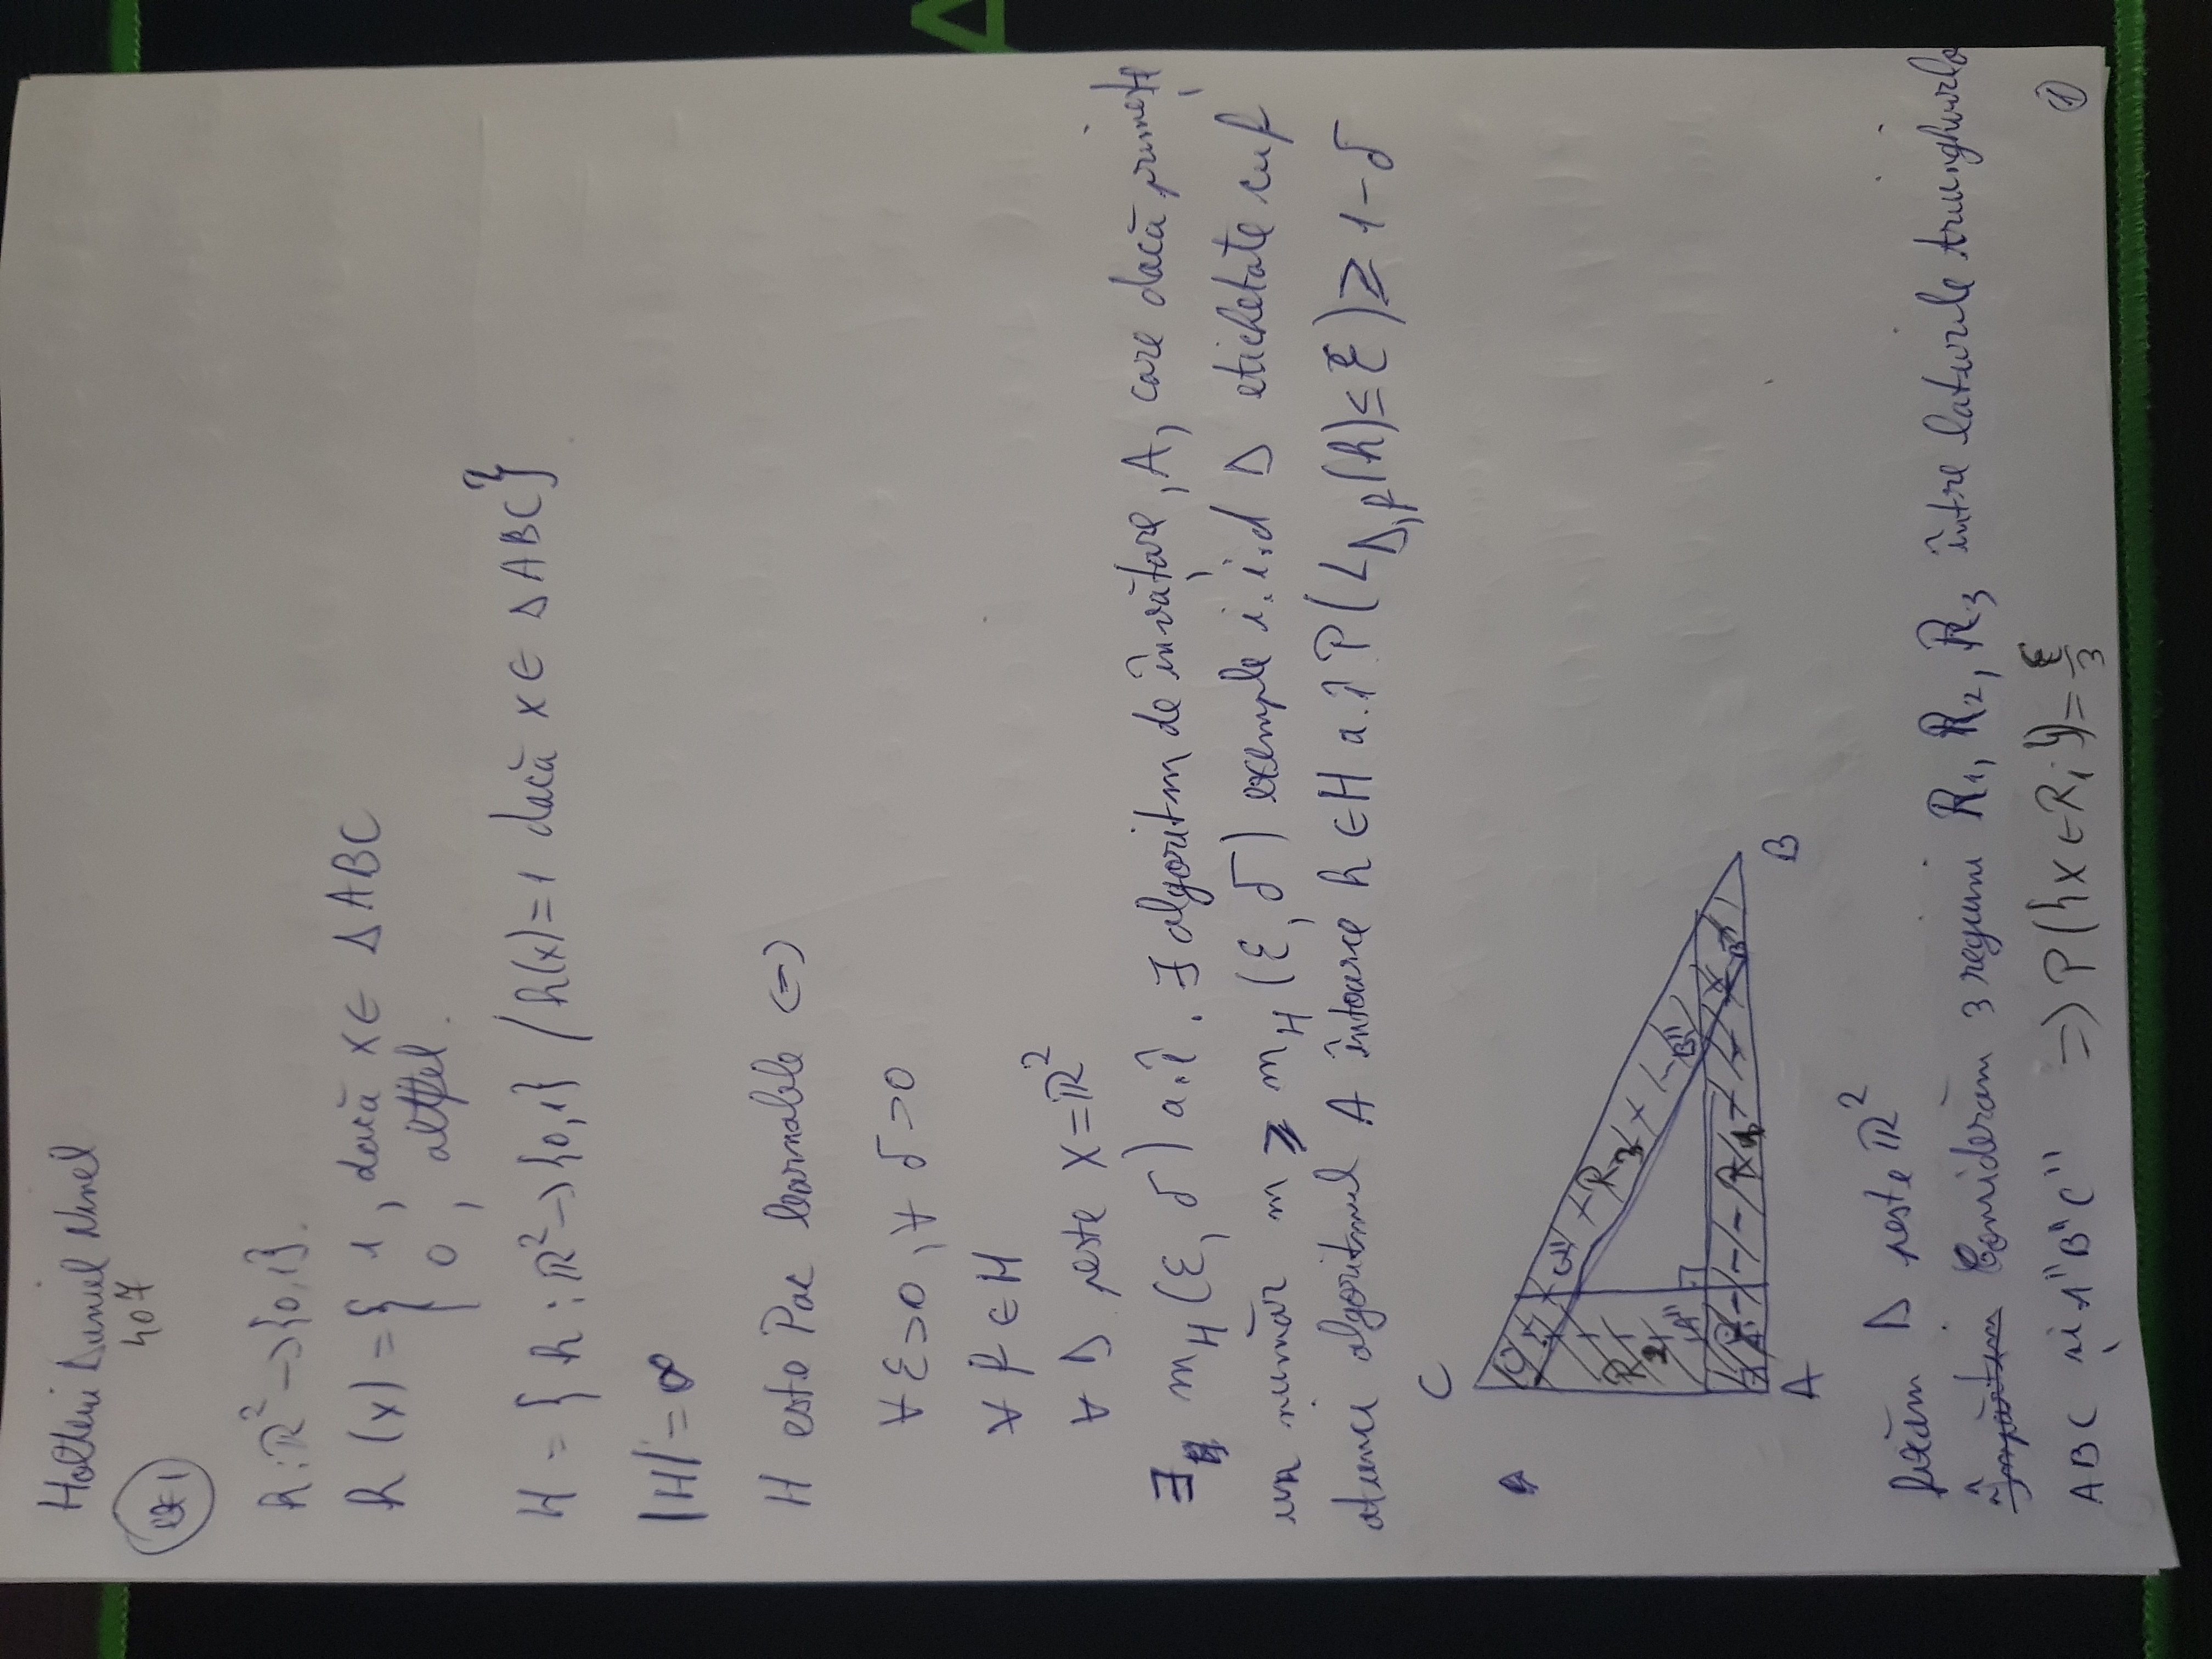 Daniel Ninel
407
Ex 1
h : ℝ² → {0,1}.
h (x) = { 1, dacă x ∈ Δ ABC
0, altfel.
H = { h : ℝ² → {0,1} / h(x) = 1 dacă x ∈ Δ ABC }
|H| = ∞
H este Pac learnable (=)
∀ ε > 0, ∀ δ > 0
∀ f ∈ H
∀ D peste X = ℝ²
∃ m_H (ε, δ) a.î. ∃ algoritm de învățare, A, care dacă primește
un număr m ⩾ m_H (ε, δ) exemple i.i.d D etichetate cu f
atunci algoritmul A întoarce h ∈ H a.î P( L_D,f (h) ≤ ε ) ⩾ 1 - δ
C
C''
R3
R2
A''
B''
R1
B'
A
B
fixăm D peste ℝ²
Împărțim Considerăm 3 regiuni R1, R2, R3 între laturile
ABC și A''B''C'' => P({x ∈ Ri}) = ε/3
1
A